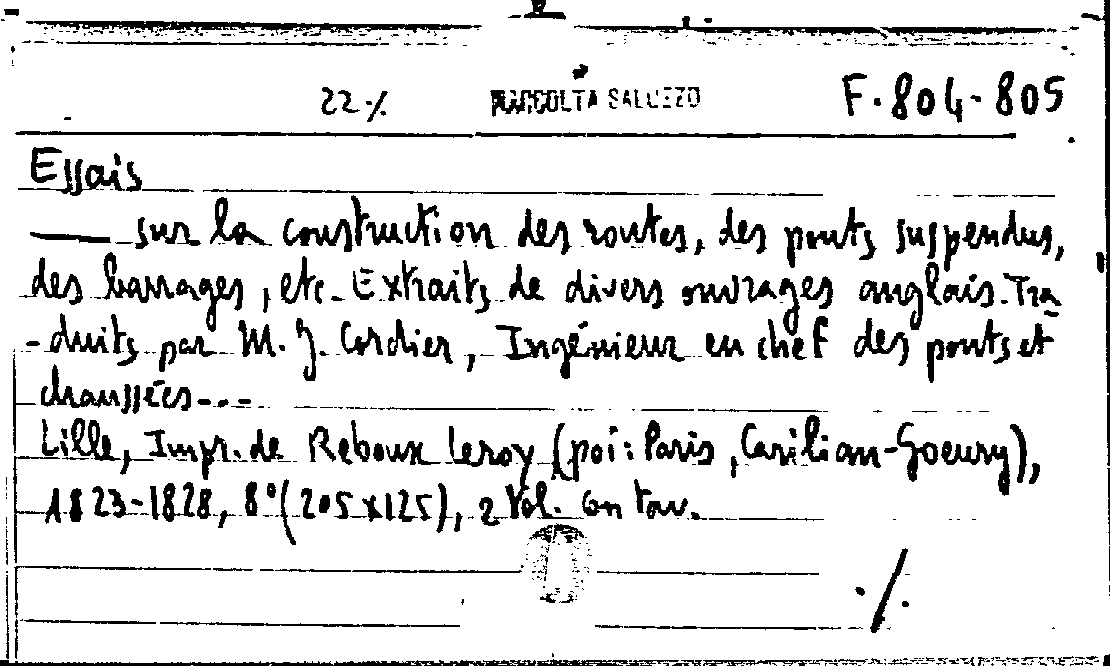 22 ./. RACCOLTA SALUZZO F. 804-805
Essais
—— sur la construction des routes, des ponts suspendus,
des barrages, etc. Extraits de divers ouvrages anglais. Tra
-duits par M. J. Cordier, Ingénieur en chef des ponts et
chaussées---
Lille, Impr. de Reboux Leroy (poi: Paris, Carilian-Goeury),
1823-1828, 8° (205x125), 2 Vol. con tav.
./.